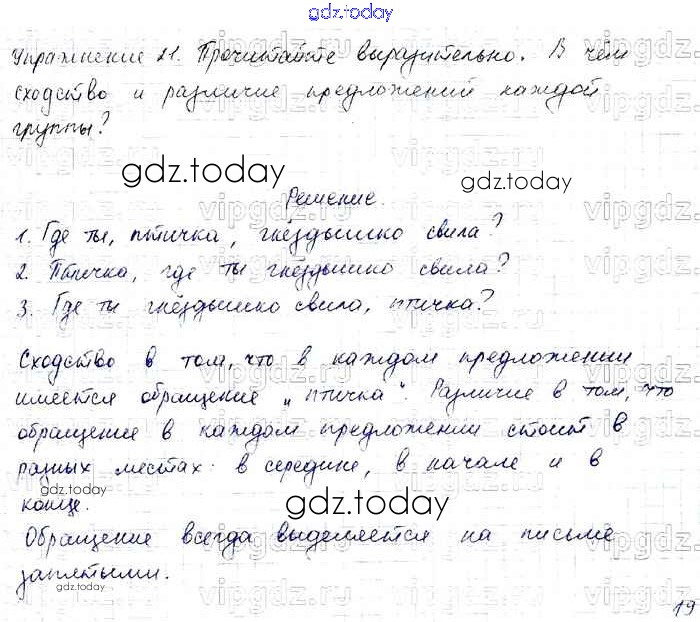 gdz.today
Упражнение 21. Прочитайте выразительно. В чём
сходство и различие предложений каждой
группы?
gdz.today
gdz.today
Решение.
1. Где ты, птичка, гнёздышко свила?
2. Птичка, где ты гнёздышко свила?
3. Где ты гнёздышко свила, птичка?
Сходство в том, что в каждом предложении
имеется обращение „птичка“. Различие в том, что
обращение в каждом предложении стоит в
разных местах: в середине, в начале и в
конце.
gdz.today
gdz.today
Обращение всегда выделяется на письме
запятыми.
gdz.today
19